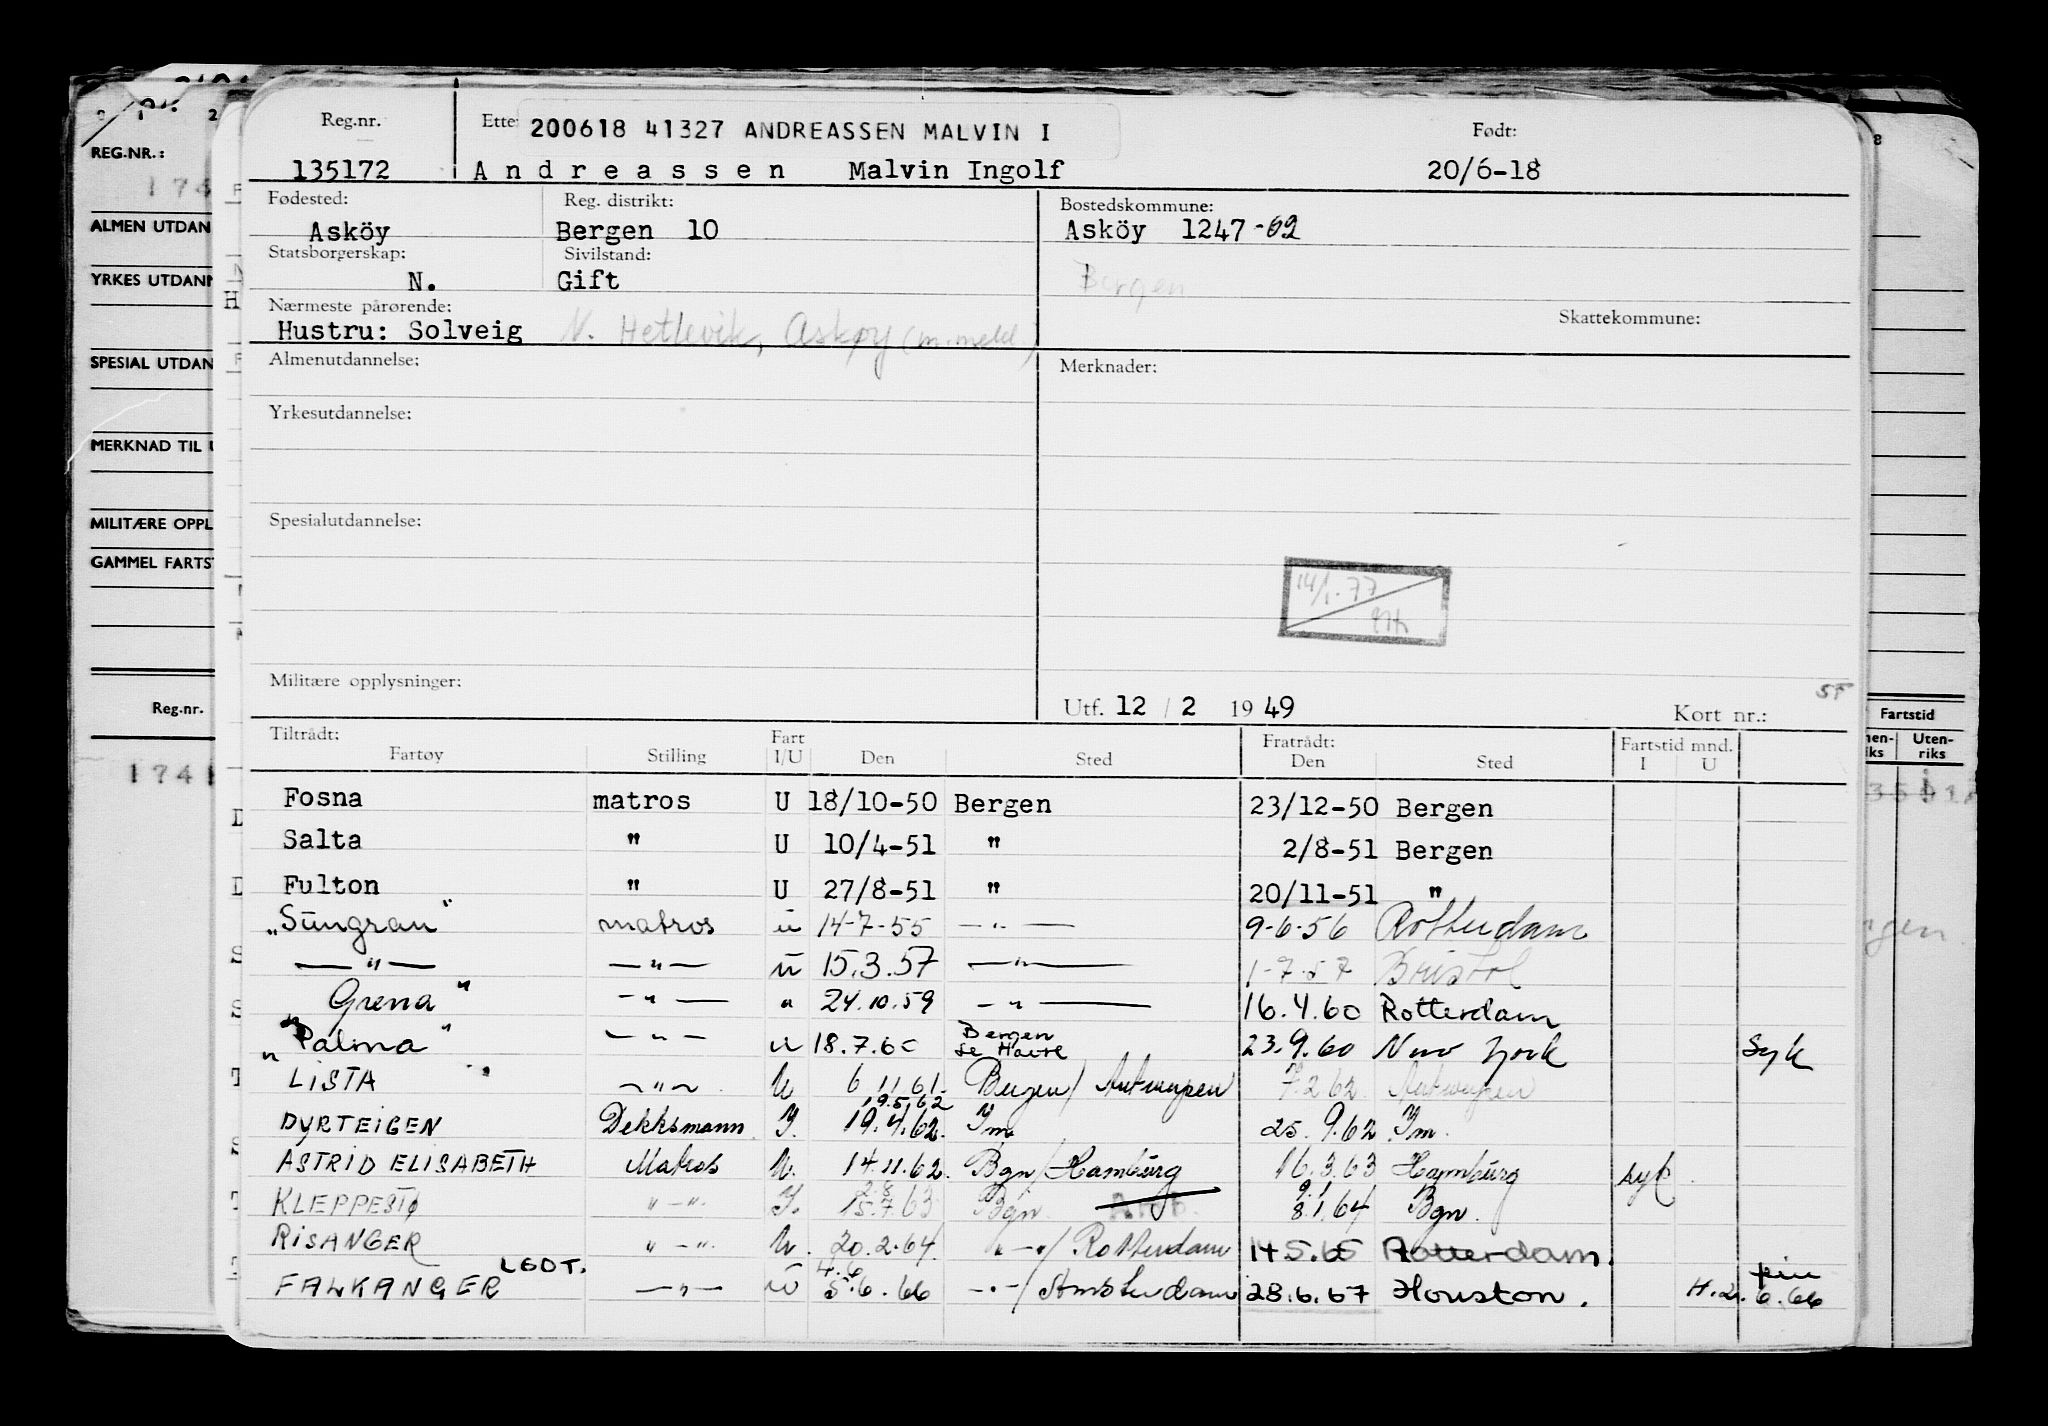 REG.NR.:
174
ALMEN UTDAN
YRKES UTDANN
SPESIAL UTDAN
MERKNAD TIL U
MILITÆRE OPPL
GAMMEL FARTST
Reg.nr.
174
Reg.nr. Ette 200618 41327 ANDREASSEN MALVIN I Født:
135172 Andreassen Malvin Ingolf 20/6-18
Fødested: Reg. distrikt: Bostedskommune:
Asköy Bergen 10 Asköy 1247-62
Statsborgerskap: Sivilstand:
N. Gift Bergen
Nærmeste pårørende: Skattekommune:
Hustru: Solveig N. Hetlevik, Askøy (m.meld.)
Almenutdannelse: Merknader:
Yrkesutdannelse:
Spesialutdannelse:
14/1-77
Militære opplysninger:
Utf. 12 / 2 1949 Kort nr.: ST
Tiltrådt: Fart Fratrådt: Fartstid mnd.
Fartøy Stilling I/U Den Sted Den Sted I U
Fosna matros U 18/10-50 Bergen 23/12-50 Bergen
Salta " U 10/4-51 " 2/8-51 Bergen
Fulton " U 27/8-51 " 20/11-51 "
„Sungran" matros u 14-7-55 — " — 9-6-56 Rotterdam
— " — — " — u 15.3.57 — " — 1-7-57 Bristol
Grena" — " — " 24.10.59 — " — 16.4.60 Rotterdam
„Palma" — " — u 18.7.60 Bergen Le Havre 23.9.60 New York Syk
LISTA — " — U 6 11.61. Bergen / Antwerpen 7.2.62. Antwerpen
DYRTEIGEN Dekksmann I. 19.5.62 19.4.62. Im 25.9.62 Im.
ASTRID ELISABETH Matros U. 14.11.62. Bgn / Hamburg 16.3.63 Hamburg syk
KLEPPESTØ " — " I. 2.8 15.7.63 Bgn. 9.1 8.1.64 Bgn.
RISANGER " — " U. 20.2.64. " — " / Rotterdam 14.5.65 Rotterdam.
FALKANGER LGDT. — " — U 4.6 5.6.66 — " — / Amsterdam 28.6.67 Houston. H.2.6.66
Fartstid
Uten-
riks